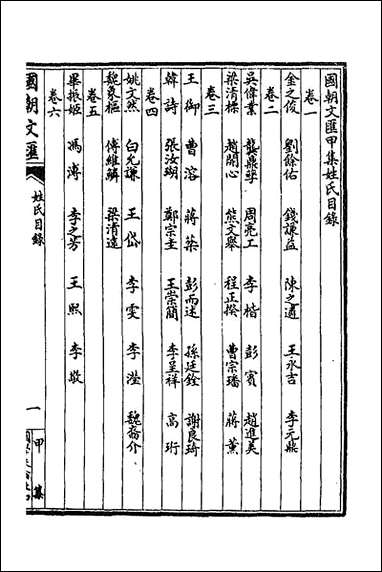 國朝文匯甲集姓氏目錄
卷一
金之俊 劉餘佑 錢謙益 陳之遴 王永吉 李元鼎
卷二
吳偉業 龔鼎孳 周亮工 李楷 彭賓 趙進美
梁清標 趙開心 熊文舉 程正揆 曹宗璠 蔣薰
卷三
王御 曹溶 蔣棻 彭而述 孫廷銓 謝良琦
韓詩 張汝瑚 鄭宗圭 王崇簡 李呈祥 高珩
卷四
姚文然 白允謙 王岱 李雯 李瀅 魏裔介
魏象樞 傅維鱗 梁清遠
卷五
畢振姬 馮溥 李之芳 王熙 李敬
卷六
國朝文匯
姓氏目錄
一
甲集